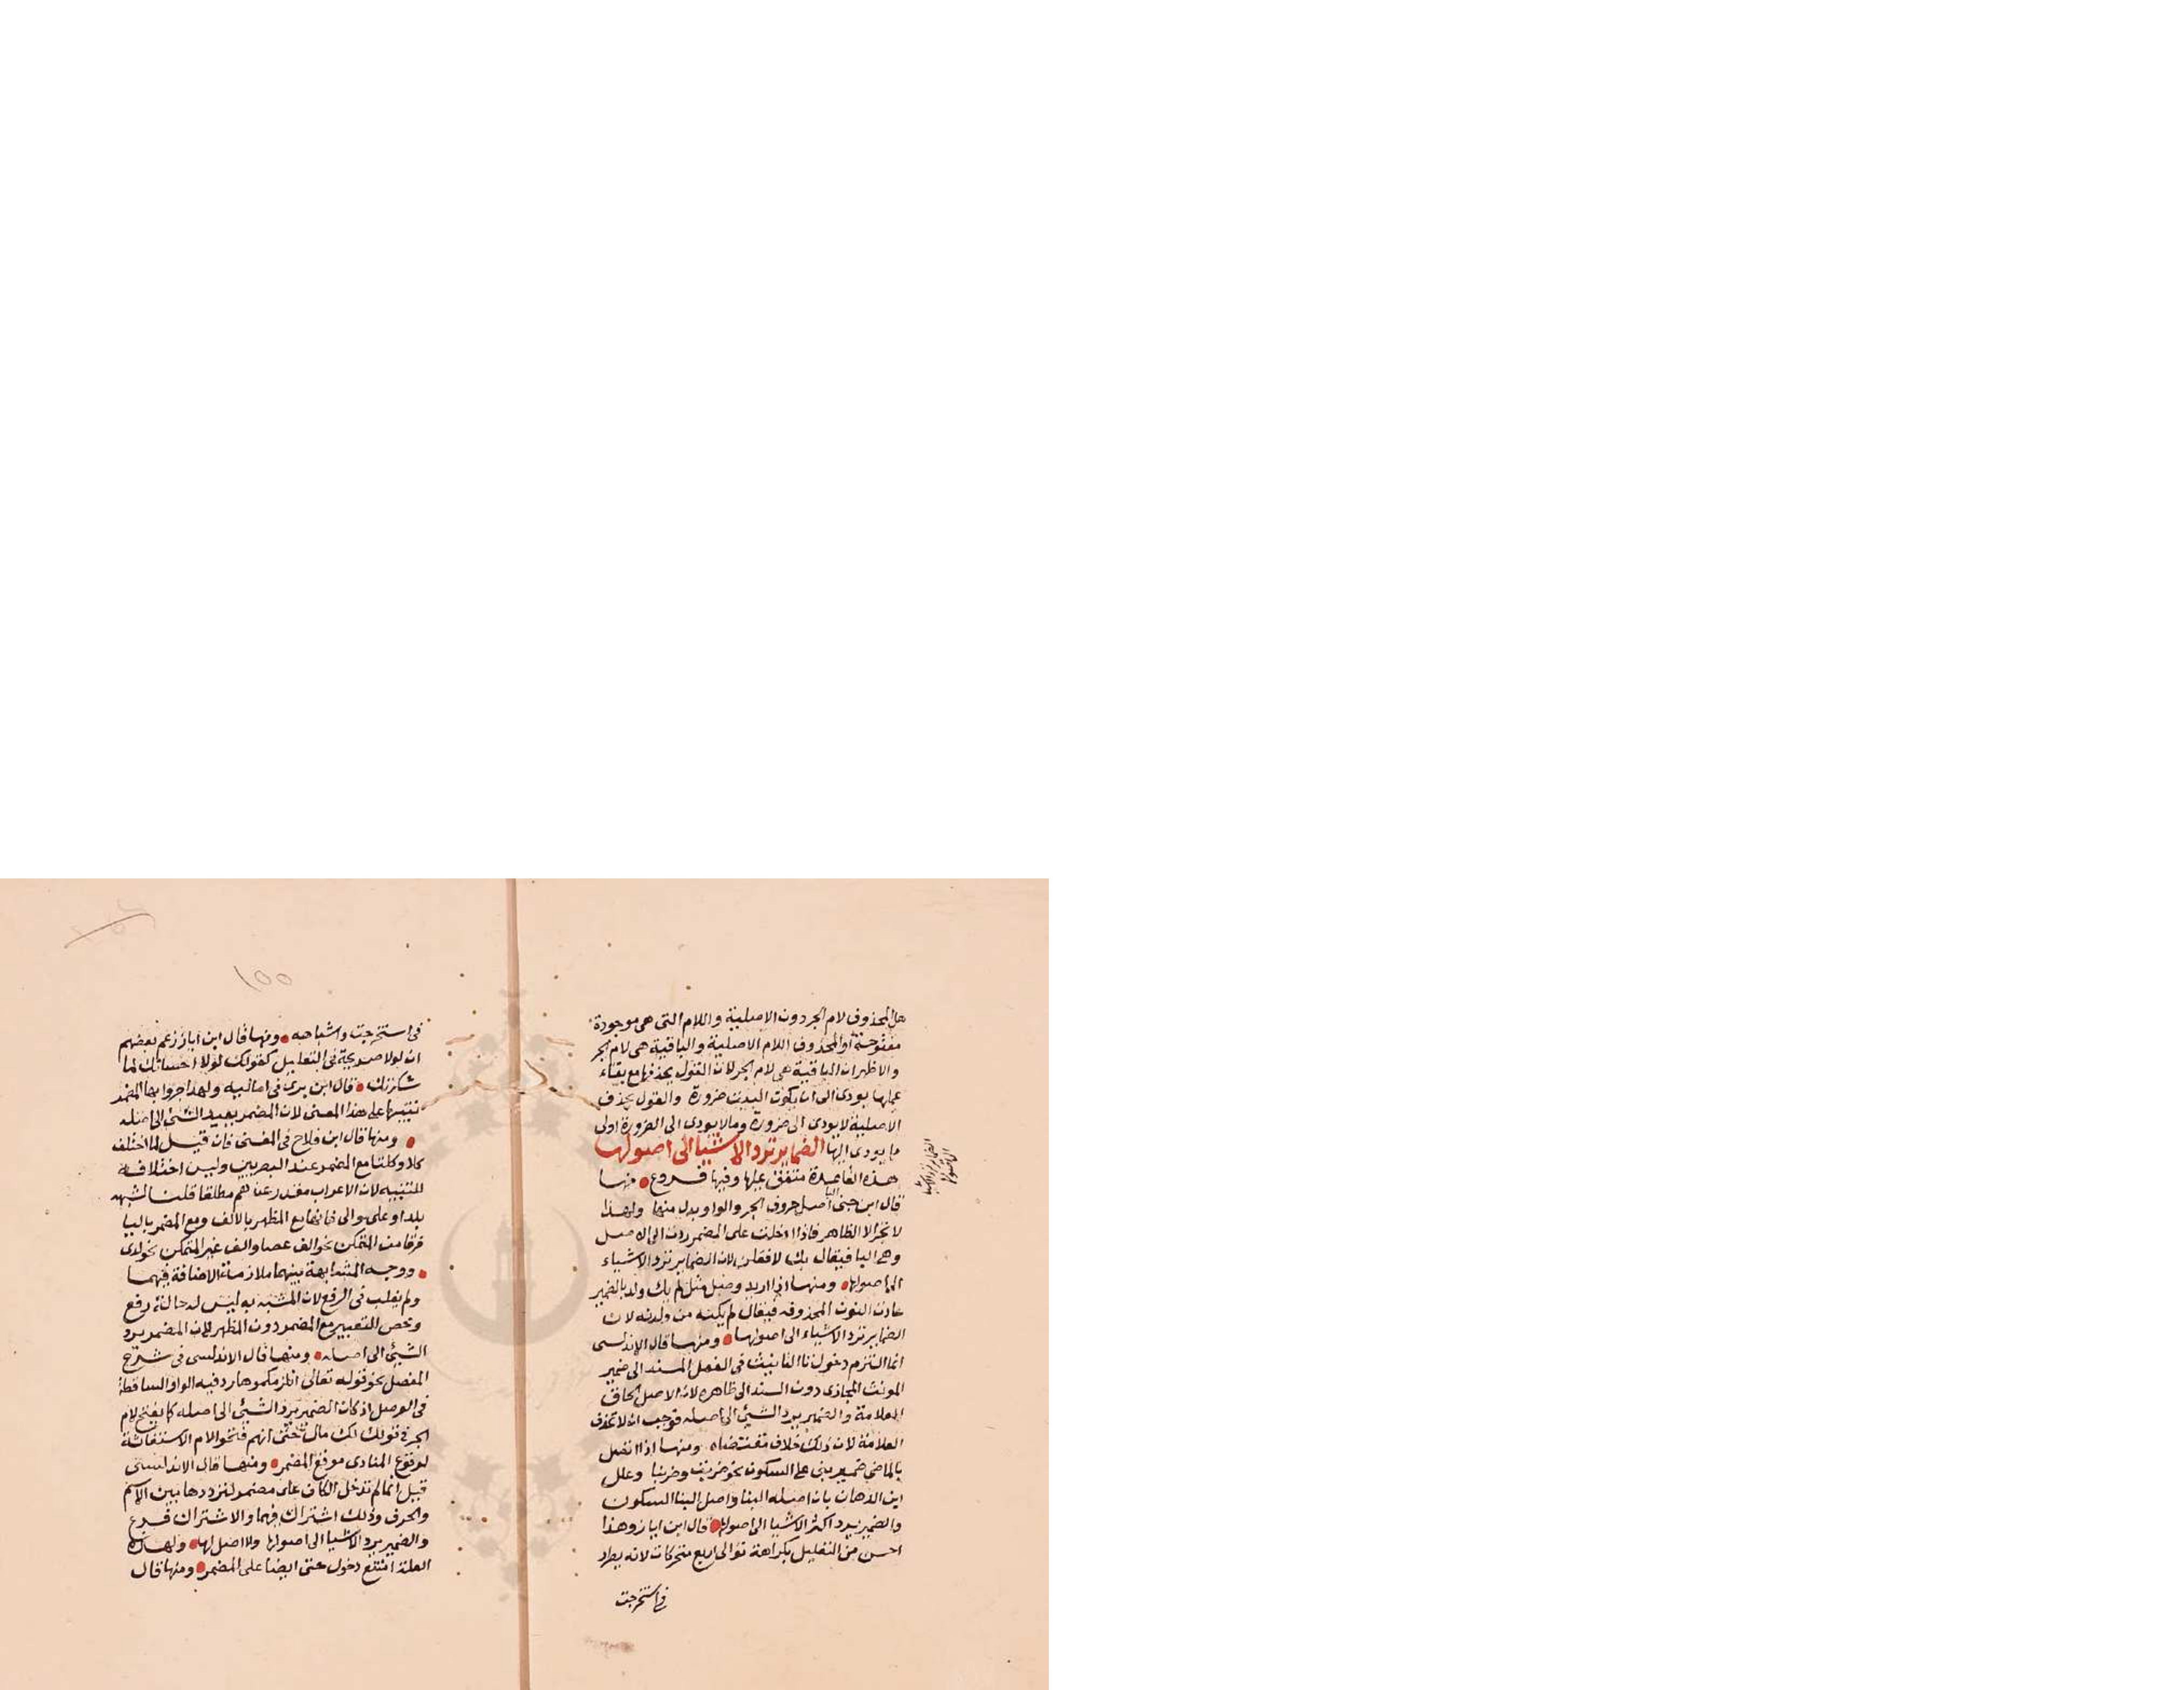 هل المحذوف لام الجر دون الاصلية واللام التي هي موجودة
مفتوحة أو المحذوف اللام الاصلية والباقية هي لام الجر
والاظهر ان الباقية هي لام الجر لان القول بحذفها مع بقاء
عملها يودى الى ان يكون البيت ضرورة والقول بحذف
الاصلية لا يودى الى ضرورة وما لا يودى الى الضرورة اولى
ما يودى اليها الضماير ترد الاشيا الى اصولها
هذه القاعدة متفق عليها وفيها فروع منها
قال ابن جنى اصل حروف الجر البا والواو بدل منها ولهذا
لا تجر الا الظاهر فاذا ادخلت على المضمر ردت الى الاصل
وهي اليا فيقال بك لافعلن لان الضماير ترد الاشياء
الى اصولها ومنها اذا اريد وصل مثل لم يك ولد بالضمير
عادت النون المحذوفه فيقال لم يكنه من ولدنه لان
الضماير ترد الاشياء الى اصولها ومنها قال الاندلسى
انما التزم دخول تا التانيث فى الفعل المسند الى ضمير
المونث المجازى دون المسند الى ظاهره لان الاصل لحاق
العلامة والضمير يرد الشيئ الى اصله فوجب ان لا تحذف
العلامة لان ذلك خلاف مقتضاه ومنها اذا اتصل
بالماضي ضمير بنى على السكون نحو ضربت وضربنا وعلل
ابن الدهان بان اصله البنا واصل البنا السكون
والضمير يرد اكثر الاشيا الى اصولها قال ابن اياز وهذا
احسن من التعليل بكراهة توالى اربع متحركات لانه يطرد
في استخرجت
الضماير ترد الاشيا
الى اصولها
١٥٥
فى استخرجت واشباهه ومنها قال ابن اياز زعم بعضهم
ان لولا صريحة فى التعليل كقولك لولا احسانك لما
شكرتك قال ابن برى فى اماليه ولهذا جروا بها المضمر
تنبيها على هذا المعنى لان المضمر يعيد الشى الى اصله
ومنها قال ابن فلاح فى المغنى فان قيل لما اختلف
كلا وكلتا مع المضمر عند البصريين وليس اختلافه
للتثنية لان الاعراب مقدر عندهم مطلقا قلنا لشبهه
بلدا وعلى والى فانها مع المظهر بالالف ومع المضمر باليا
فرقا من المتمكن نحو الف عصا والف غير المتمكن نحو لدى
ووجه المشابهة بينهما ملازمة الاضافة فيهما
ولم يقلب فى الرفع لان المشبه به ليس له حالة رفع
وخص التغيير مع المضمر دون المظهر لان المضمر يرد
الشيئ الى اصله ومنها قال الاندلسى فى شرح
المفصل نحو قوله تعالى انلزمكموها رد فيه الواو الساقطة
فى الوصل اذ كان الضمير يرد الشيئ الى اصله كما يفتح لام
الجر في قولك لك مال حتى انهم فتحوا لام الاستغاثة
لوقوع المنادى موقع المضمر ومنها قال الاندلسى
قيل انما لم تدخل الكاف على مضمر لترددها بين الاسم
والحرف وذلك اشتراك فيها والاشتراك فرع
والضمير يرد الاشيا الى اصولها ولا اصل لها ولهذه
العلة امتنع دخول حتى ايضا على المضمر ومنها قال